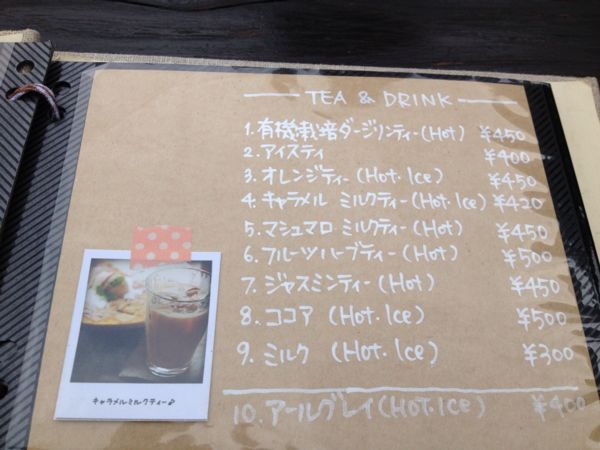 TEA & DRINK
1. 有機栽培ダージリンティー(Hot) ¥450
2. アイスティ ¥400
3. オレンジティー(Hot. Ice) ¥450
4. キャラメル ミルクティー(Hot. Ice) ¥420
5. マシュマロ ミルクティー(Hot) ¥450
6. フルーツハーブティー(Hot) ¥500
7. ジャスミンティー(Hot) ¥450
8. ココア (Hot. Ice) ¥500
9. ミルク (Hot. Ice) ¥300
10. アールグレイ(HOT.ICE) ¥400
キャラメルミルクティー♪